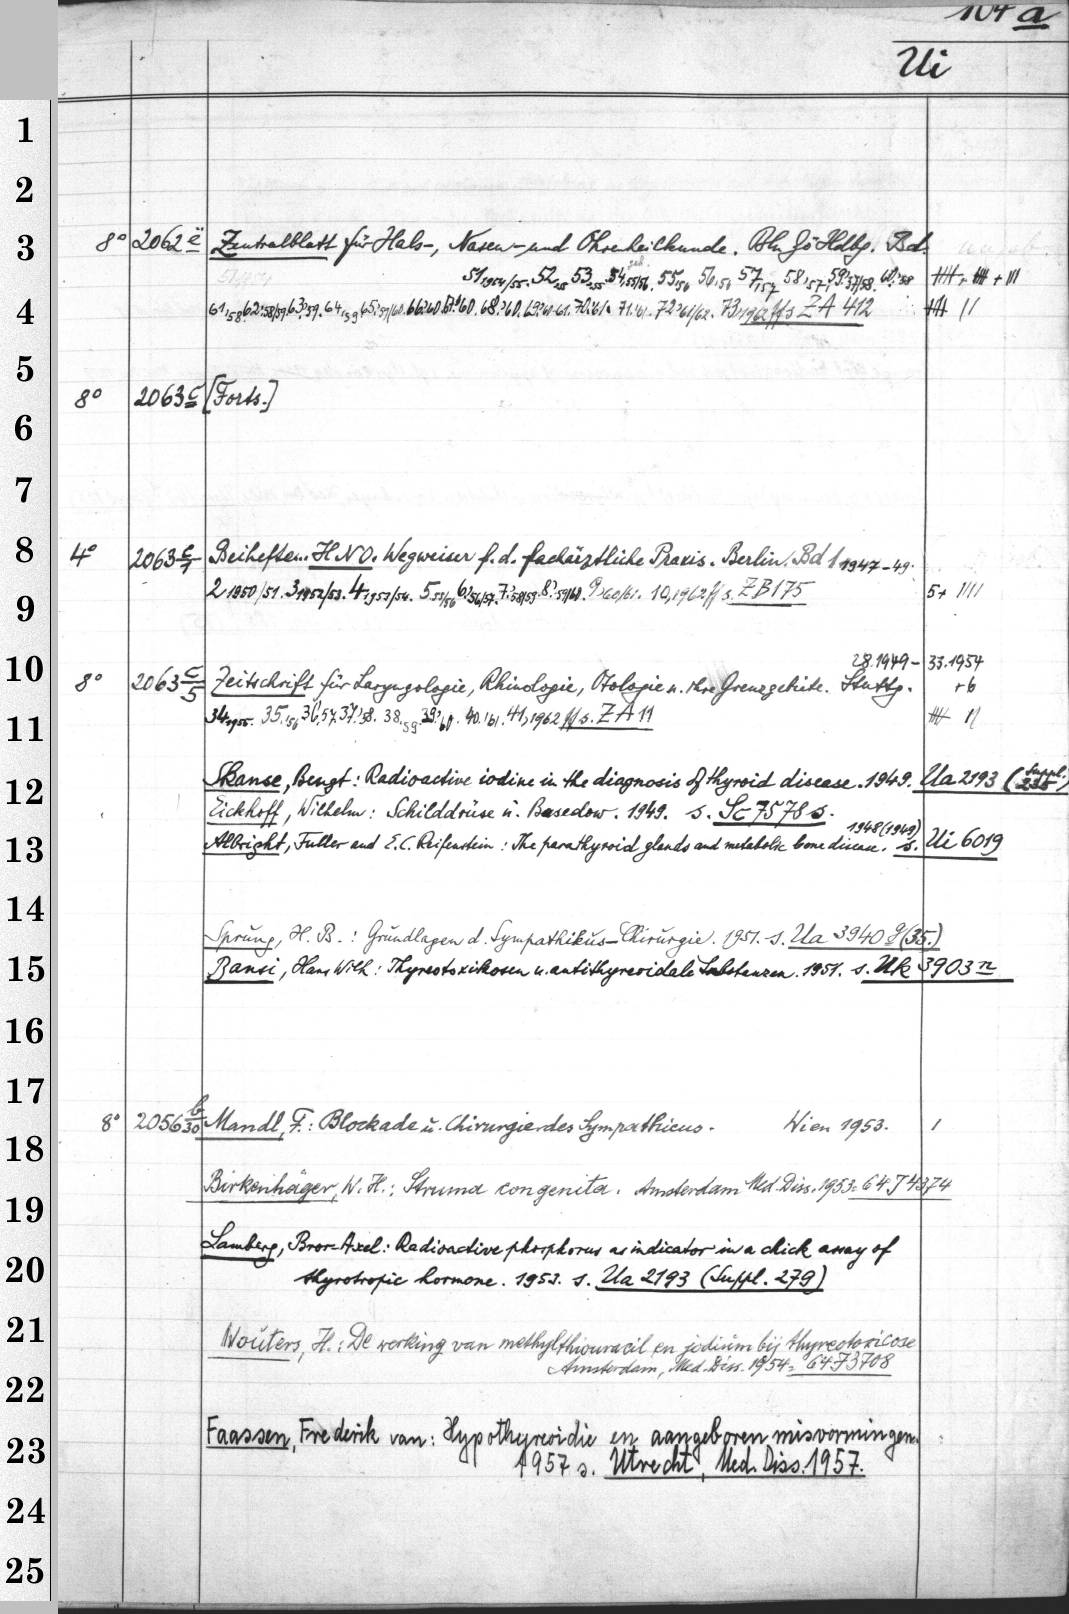 104 a
Ui
1
2
3
8° 2062 ë Zentralblatt für Hals-, Nasen- und Ohrenheilkunde. Bln Gö Hdbg. Bd.
51,1954/55. 52,55 53,55 54,55/56. 55,56 56,56 57,57 58,57 59,57/58. 60,58
4
61,58 62,58/59 63,59. 64,59 65,59/60 66,60 67,60 68,60. 69,60-61. 70,61. 71,61. 72,61/62. 73,1962 ff s ZA 412
5
8° 2063 c [Forts.]
6
7
8
4° 2063 c/1 Beihefte... HNO. Wegweiser f. d. fachärztliche Praxis. Berlin. Bd 1 1947-49.
9
2 1950/51. 3 1952/53. 4,1953/54. 5,55/56 6,56/57. 7,58/59 8,59/60. 9,60/61. 10,1962 ff s. ZB 175 5+ IIII
10
28.1949-33.1954
8° 2063 c/5 Zeitschrift für Laryngologie, Rhinologie, Otologie u. ihre Grenzgebiete. Stuttg. +6
11
34,1955. 35,56 36,57 37,58. 38,59 39,60. 40,61. 41,1962 ff s. ZA 11
12
Skanse, Bengt: Radioactive iodine in the diagnosis of thyroid disease. 1949. Ua 2193 (Suppl. 235)
Eickhoff, Wilhelm: Schilddrüse u. Basedow. 1949. s. Sc 7578 s.
13
Albright, Fuller and E.C. Reifenstein: The parathyroid glands and metabolic bone disease. 1948 (1949) s. Ui 6019
14
Sprung, H. B.: Grundlagen d. Sympathikus-Chirurgie. 1951. s. Ua 3940 g (35.)
15
Bansi, Hans Wilh: Thyreotoxikosen u. antithyreoidale Substanzen. 1951. s. Uk 3903 n
16
17
8° 2056 b/30 Mandl, F.: Blockade u. Chirurgie des Sympathicus. Wien 1953. I
18
Birkenhäger, W. H.: Struma congenita. Amsterdam Med. Diss. 1953 = 64 J 4374
19
Lamberg, Bror-Axel: Radioactive phosphorus as indicator in a chick assay of
20
thyrotropic hormone. 1953. s. Ua 2193 (Suppl. 279)
21
Wouters, H.: De werking van methylthiouracil en jodium bij thyreotoxicose
Amsterdam, Med. Diss. 1954 = 64 J 3708
22
Faassen, Frederik van: Hypothyreoidie en aangeboren misvormingen.
23
1957 s. Utrecht, Med. Diss. 1957.
24
25